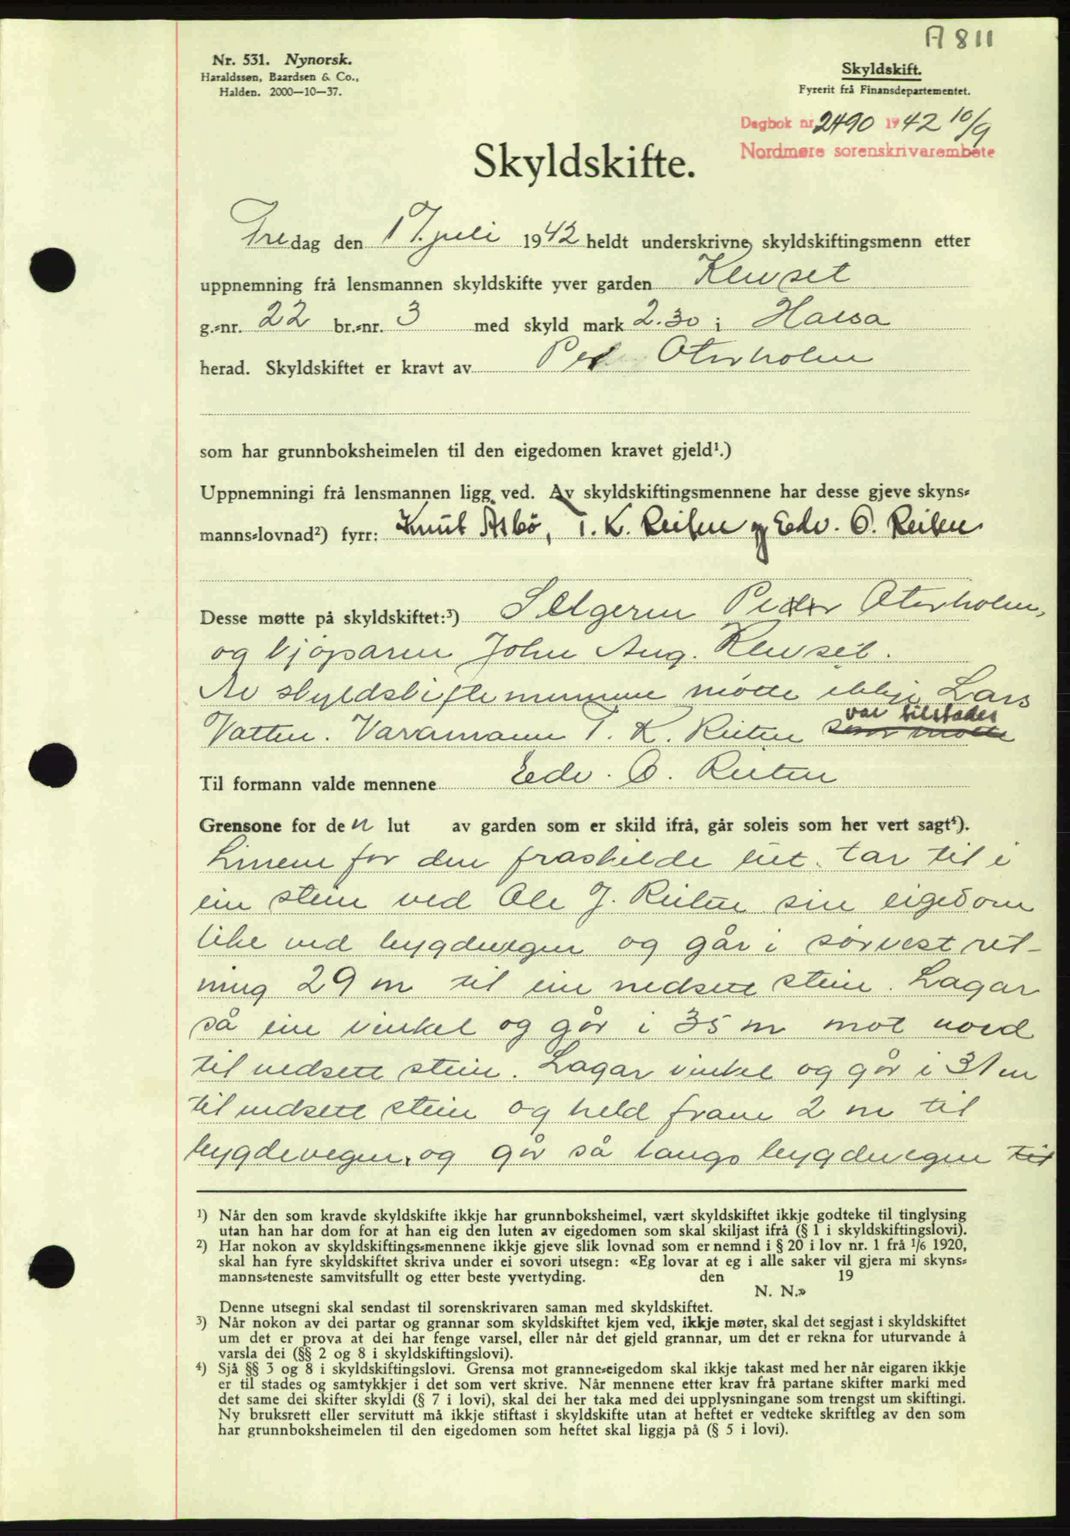 A 811
Nr. 531. Nynorsk.
Haraldssøn, Baardsen & Co.,
Halden. 2000—10—37.
Skyldskift.
Fyrerit frå Finansdepartementet.
Dagbok nr. 2490 1942 10/9
Nordmøre sorenskrivarembete
Skyldskifte.
Fredag den 17. juli 1942 heldt underskrivne skyldskiftingsmenn etter
uppnemning frå lensmannen skyldskifte yver garden Klevset
g.-nr. 22 br.-nr. 3 med skyld mark 2.30 i Halsa
herad. Skyldskiftet er kravt av Peder Oterholm
som har grunnboksheimelen til den eigedomen kravet gjeld¹.)
Uppnemningi frå lensmannen ligg ved. Av skyldskiftingsmennene har desse gjeve skyns-
manns-lovnad²) fyrr: Knut Åsbö, T. K. Reiten og Edv. O. Reiten
Desse møtte på skyldskiftet:³) Selgeren Peder Oterholm,
og kjøparen John Aug. Klevset.
Av skyldskiftemennene møtte ikkje Lars
Vatten. Varamann T. K. Reiten som møtte var tilstades
Til formann valde mennene Edv. O. Reiten
Grensone for den lut av garden som er skild ifrå, går soleis som her vert sagt⁴).
Linene for den fraskilde lut tar til i
ein stein ved Ole J. Reiten sin eigedom
like ved bygdevegen og går i sørvest ret-
ning 29 m til ein nedsett stein. Lagar
så ein vinkel og går i 35 m mot nord
til nedsett stein. Lagar vinkel og går i 31 m
til nedsett stein og held fram 2 m til
bygdevegen, og går så langs bygdevegen til
¹) Når den som kravde skyldskifte ikkje har grunnboksheimel, vært skyldskiftet ikkje godteke til tinglysing
utan han har dom for at han eig den luten av eigedomen som skal skiljast ifrå (§ 1 i skyldskiftingslovi).
²) Har nokon av skyldskiftings-mennene ikkje gjeve slik lovnad som er nemnd i § 20 i lov nr. 1 frå 1/6 1920,
skal han fyre skyldskiftet skriva under ei sovori utsegn: «Eg lovar at eg i alle saker vil gjera mi skyns-
manns-teneste samvitsfullt og etter beste yvertyding. den 19
N. N.»
Denne utsegni skal sendast til sorenskrivaren saman med skyldskiftet.
³) Når nokon av dei partar og grannar som skyldskiftet kjem ved, ikkje møter, skal det segjast i skyldskiftet
um det er prova at dei har fenge varsel, eller når det gjeld grannar, um det er rekna for uturvande å
varsla dei (§§ 2 og 8 i skyldskiftingslovi).
⁴) Sjå §§ 3 og 8 i skyldskiftingslovi. Grensa mot granne-eigedom skal ikkje takast med her når eigaren ikkje
er til stades og samtykkjer i det som vert skrive. Når mennene etter krav frå partane skifter marki med
det same dei skifter skyldi (§ 7 i lovi), skal dei her taka med dei upplysningane som trengst um skiftingi.
Ny bruksrett eller servitutt må ikkje stiftast i skyldskifte utan at heftet er vedteke skriftleg av den som
har grunnboksheimelen til den eigedomen som heftet skal liggja på (§ 5 i lovi).